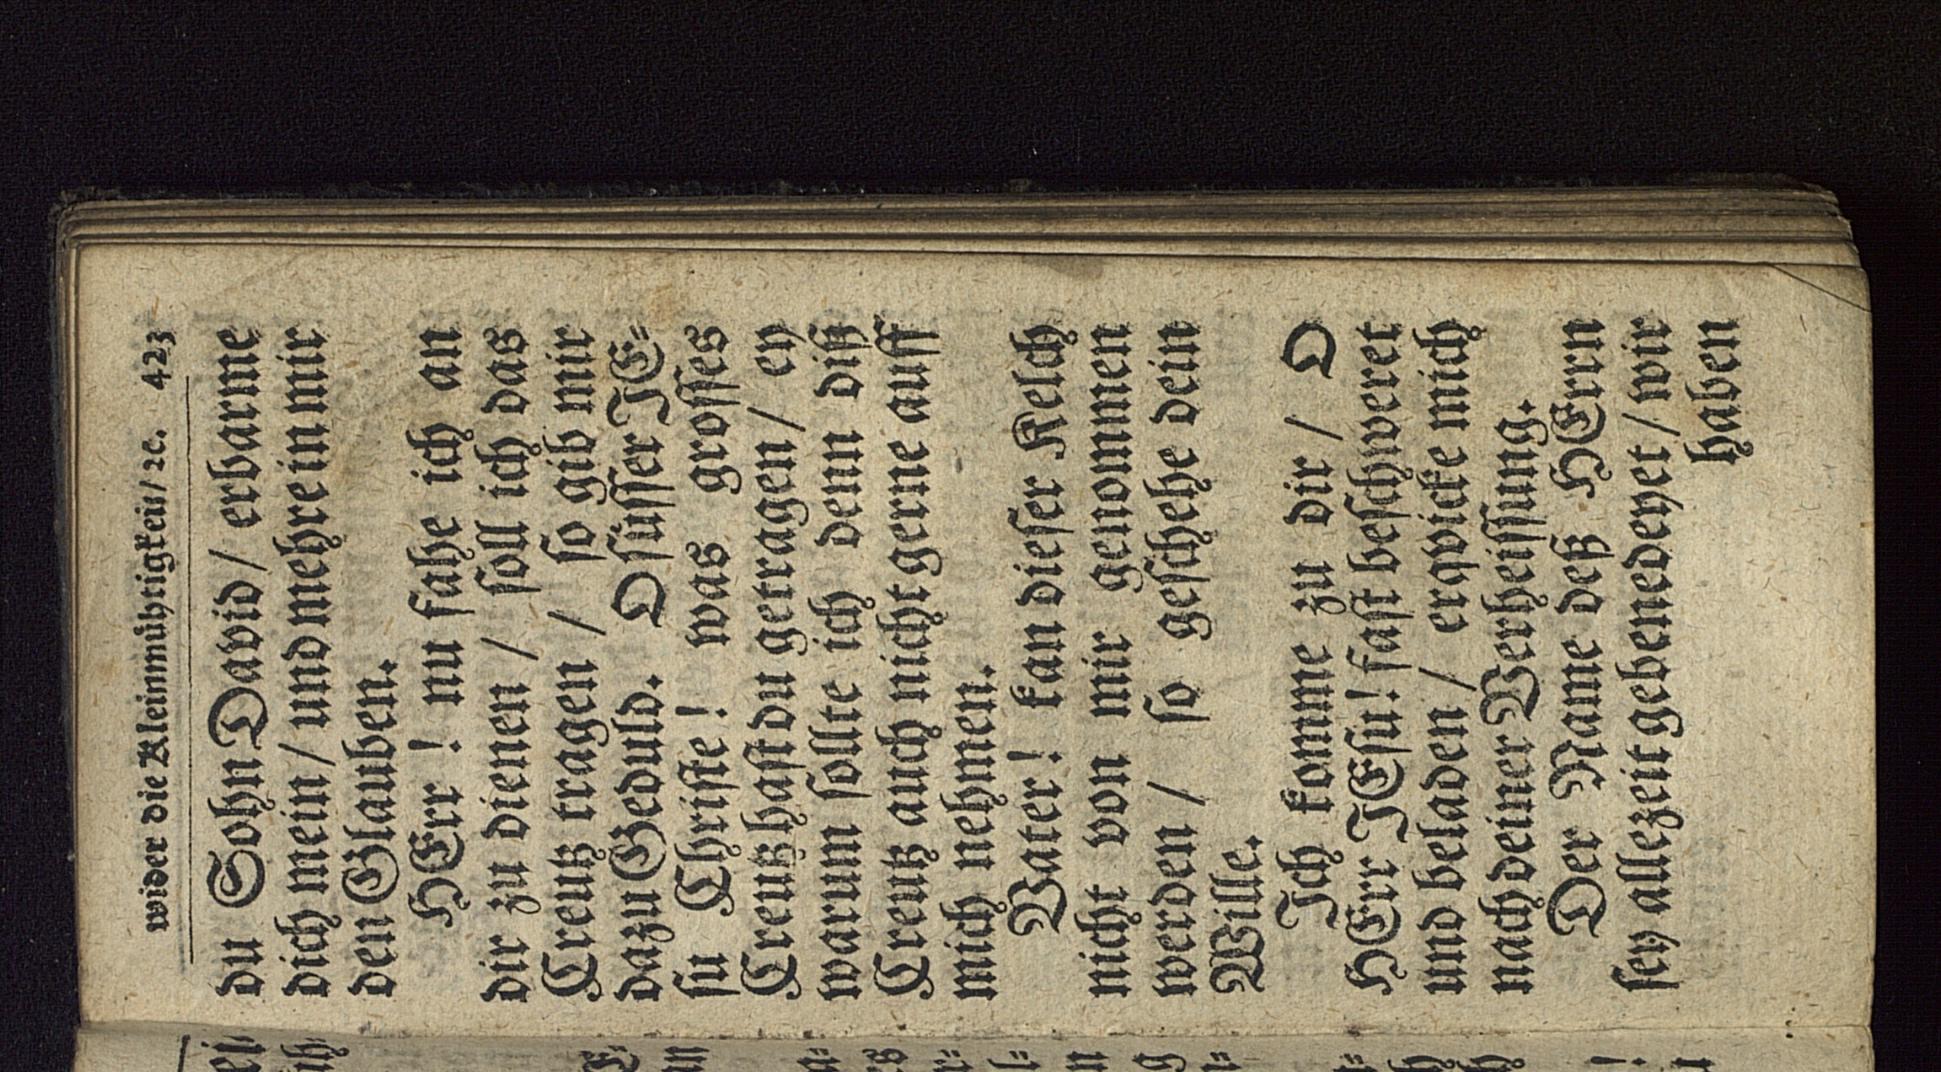 wider die Kleinmühtigkeit/ ꝛc. 423
du Sohn David/ erbarme
dich mein/ und mehre in mir
den Glauben.
HErr! nu fahe ich an
dir zu dienen/ soll ich das
Creutz tragen/ so gib mir
dazu Gedult. O süsser JE⸗
su Christe! was grosses
Creutz hast du getragen/ ey
warum sollte ich denn diß
Creutz auch nicht gerne auff
mich nehmen.
Vater! kan dieser Kelch
nicht von mir genommen
werden/ so geschehe dein
Wille.
Ich komme zu dir/ O
HErr JEsu! fast beschweret
und beladen/ erqvicke mich
nach deiner Verheissung.
Der Name deß HErrn
sey allezeit gebenedeyet/ wir
haben